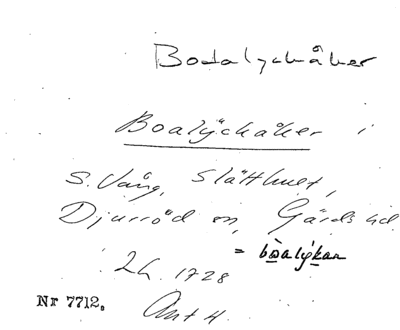 Bodalyckåker
Boalÿckåker i
S. Vång, Slätthult,
Djurröd sn, Gärds hd.
= bòalýkan
Lh. 1728
Nr 7712. Akt 4